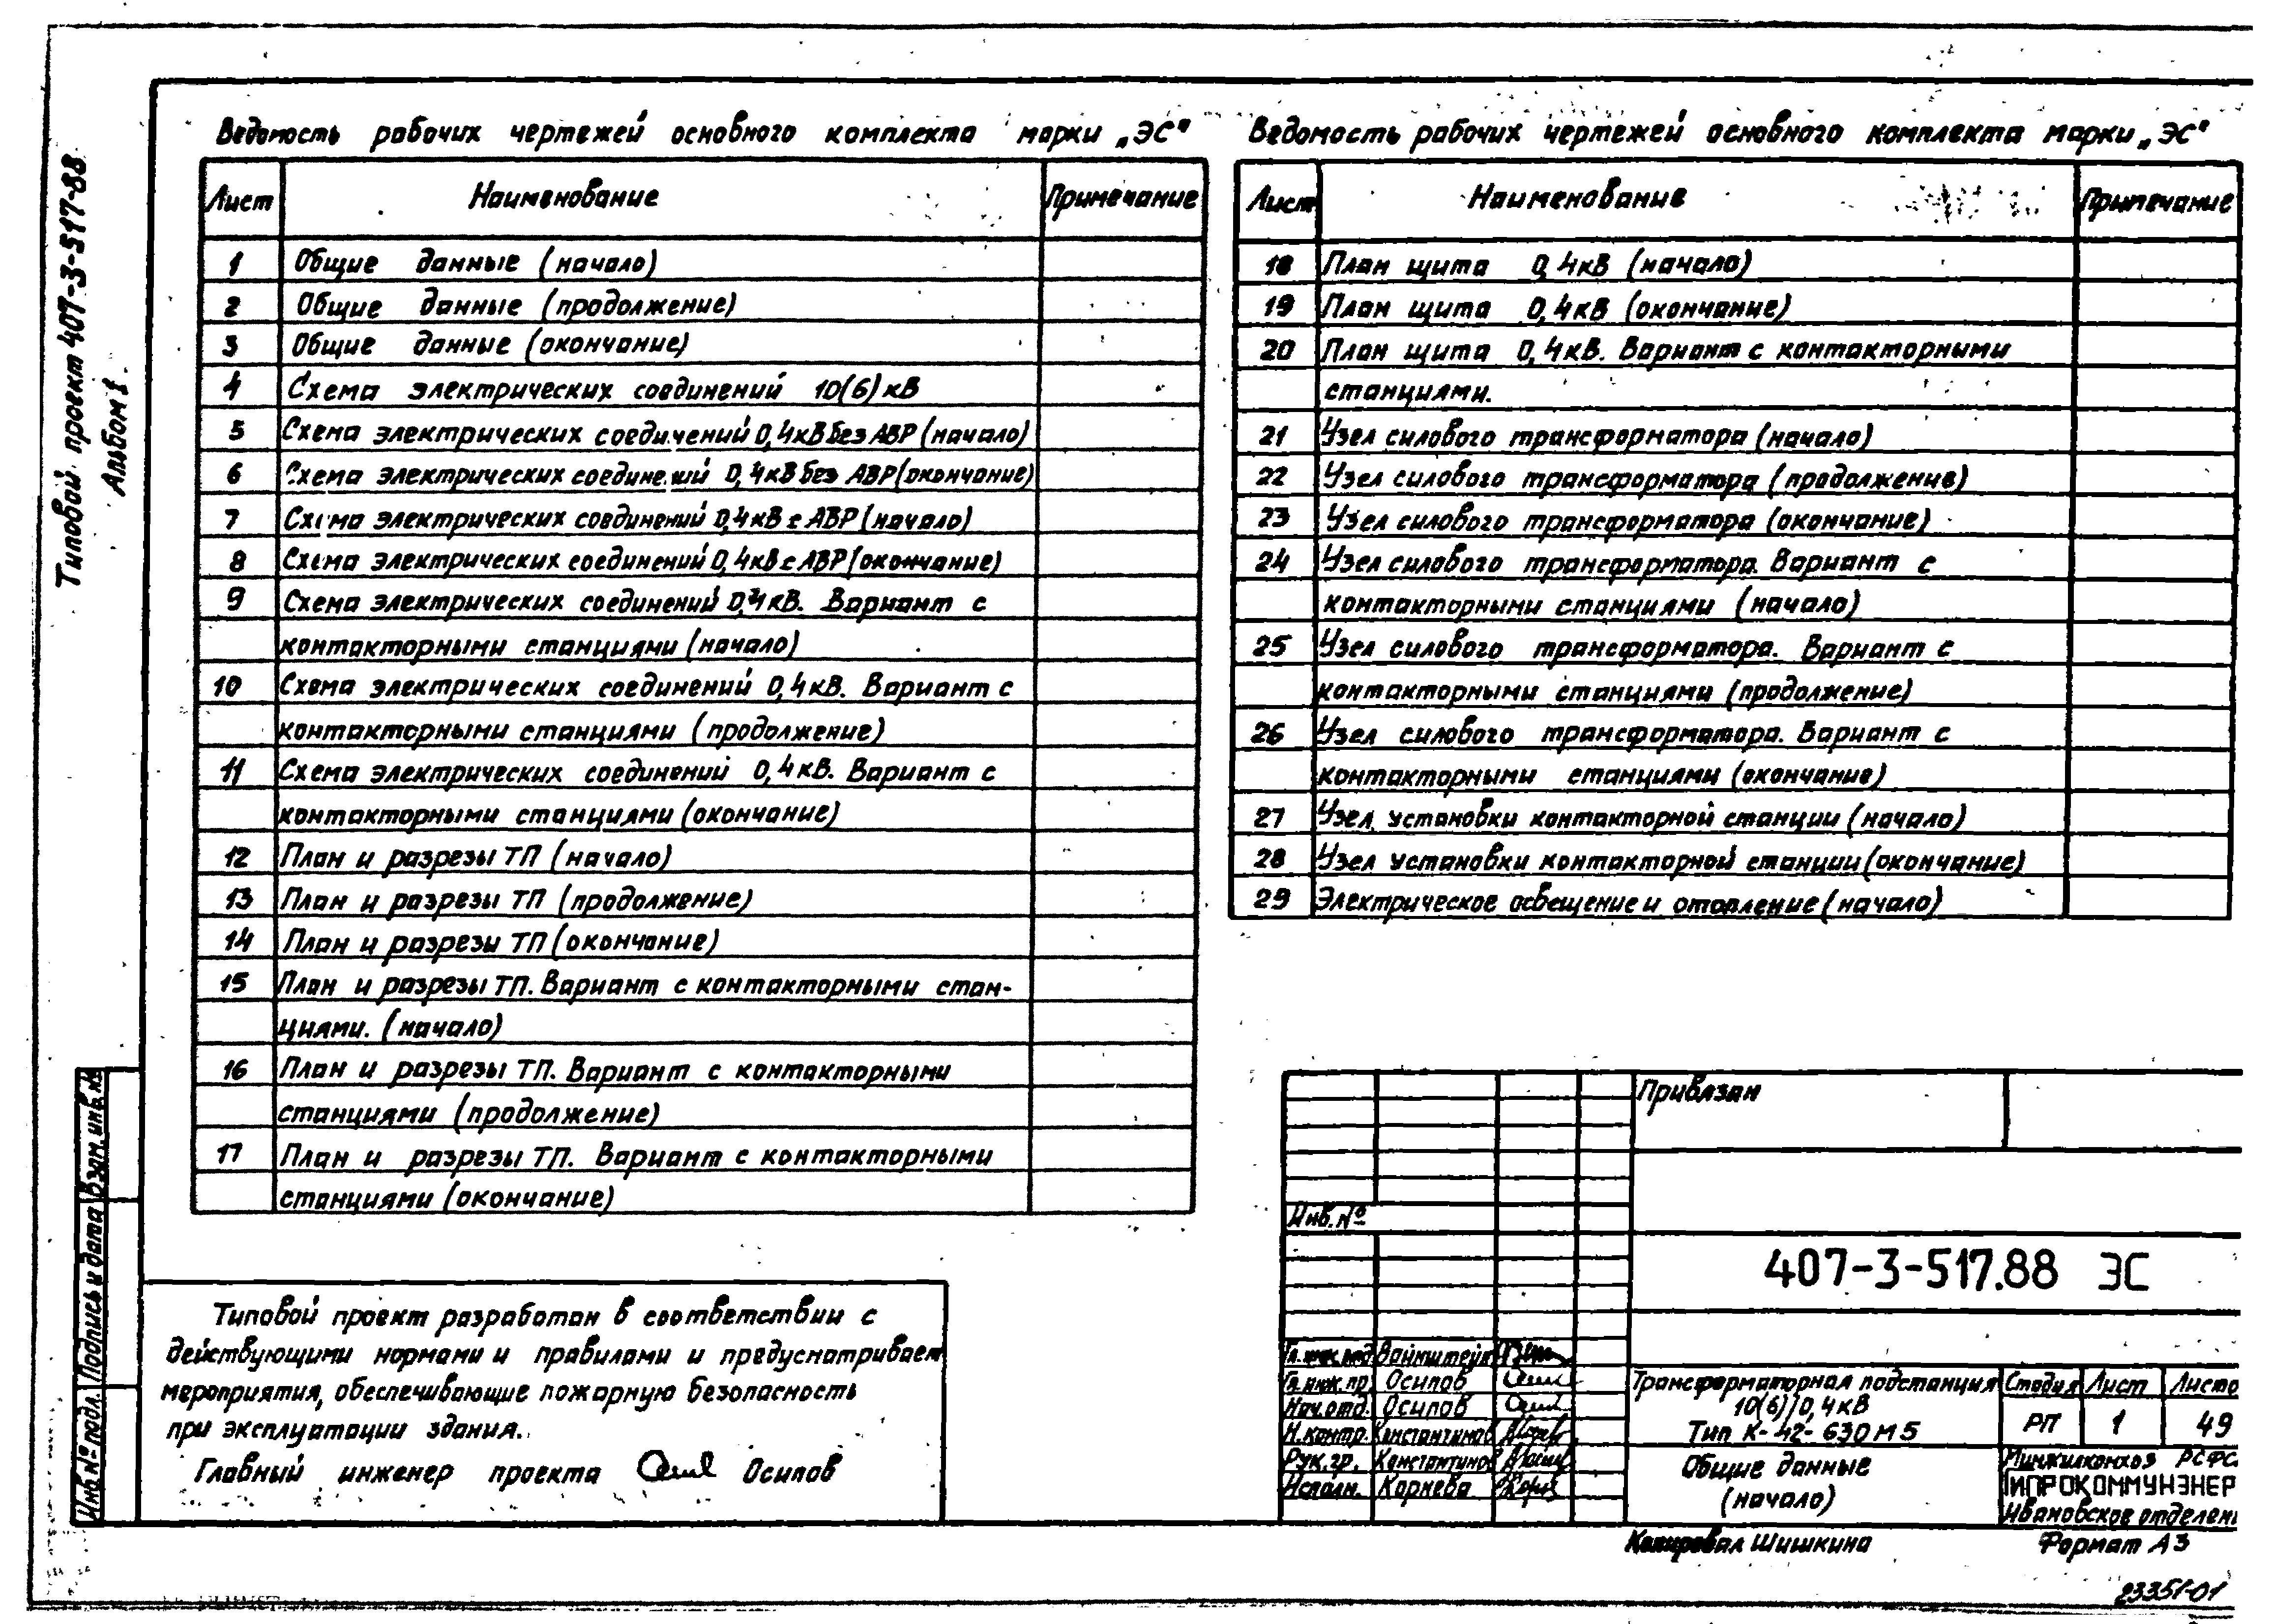 Типовой проект 407-3-517-88
Альбом 1.
Ведомость рабочих чертежей основного комплекта марки „ЭС"
Лист Наименование Примечание
1 Общие данные (начало)
2 Общие данные (продолжение)
3 Общие данные (окончание)
4 Схема электрических соединений 10(6)кВ
5 Схема электрических соединений 0,4кВ без АВР (начало)
6 Схема электрических соединений 0,4кВ без АВР (окончание)
7 Схема электрических соединений 0,4кВ с АВР (начало)
8 Схема электрических соединений 0,4кВ с АВР (окончание)
9 Схема электрических соединений 0,4кВ. Вариант с
контакторными станциями (начало)
10 Схема электрических соединений 0,4кВ. Вариант с
контакторными станциями (продолжение)
11 Схема электрических соединений 0,4кВ. Вариант с
контакторными станциями (окончание)
12 План и разрезы ТП (начало)
13 План и разрезы ТП (продолжение)
14 План и разрезы ТП (окончание)
15 План и разрезы ТП. Вариант с контакторными стан-
циями. (начало)
16 План и разрезы ТП. Вариант с контакторными
станциями (продолжение)
17 План и разрезы ТП. Вариант с контакторными
станциями (окончание)
Ведомость рабочих чертежей основного комплекта марки „ЭС"
Лист Наименование Примечание
18 План щита 0,4кВ (начало)
19 План щита 0,4кВ (окончание)
20 План щита 0,4кВ. Вариант с контакторными
станциями.
21 Узел силового трансформатора (начало)
22 Узел силового трансформатора (продолжение)
23 Узел силового трансформатора (окончание)
24 Узел силового трансформатора. Вариант с
контакторными станциями (начало)
25 Узел силового трансформатора. Вариант с
контакторными станциями (продолжение)
26 Узел силового трансформатора. Вариант с
контакторными станциями (окончание)
27 Узел установки контакторной станции (начало)
28 Узел установки контакторной станции (окончание)
29 Электрическое освещение и отопление (начало)
Типовой проект разработан в соответствии с
действующими нормами и правилами и предусматривает
мероприятия, обеспечивающие пожарную безопасность
при эксплуатации здания.
Главный инженер проекта Осипов
Инв.№ подл. Подпись и дата Взам.инв.№
Привязан
Инв.№
407-3-517.88 ЭС
Вайнштейн
Гл.инж.пр. Осипов
Нач.отд. Осипов
Н.контр. Константинов
Рук.гр. Константинов
Исполн. Корнева
Трансформаторная подстанция
10(6)/0,4кВ
Тип К-42-630М5
Стадия Лист Листо
РП 1 49
Общие данные
(начало)
Минжилкомхоз РСФС
ГИПРОКОММУНЭНЕР
Ивановское отделен
Копировал Шишкина Формат А3
23351-01